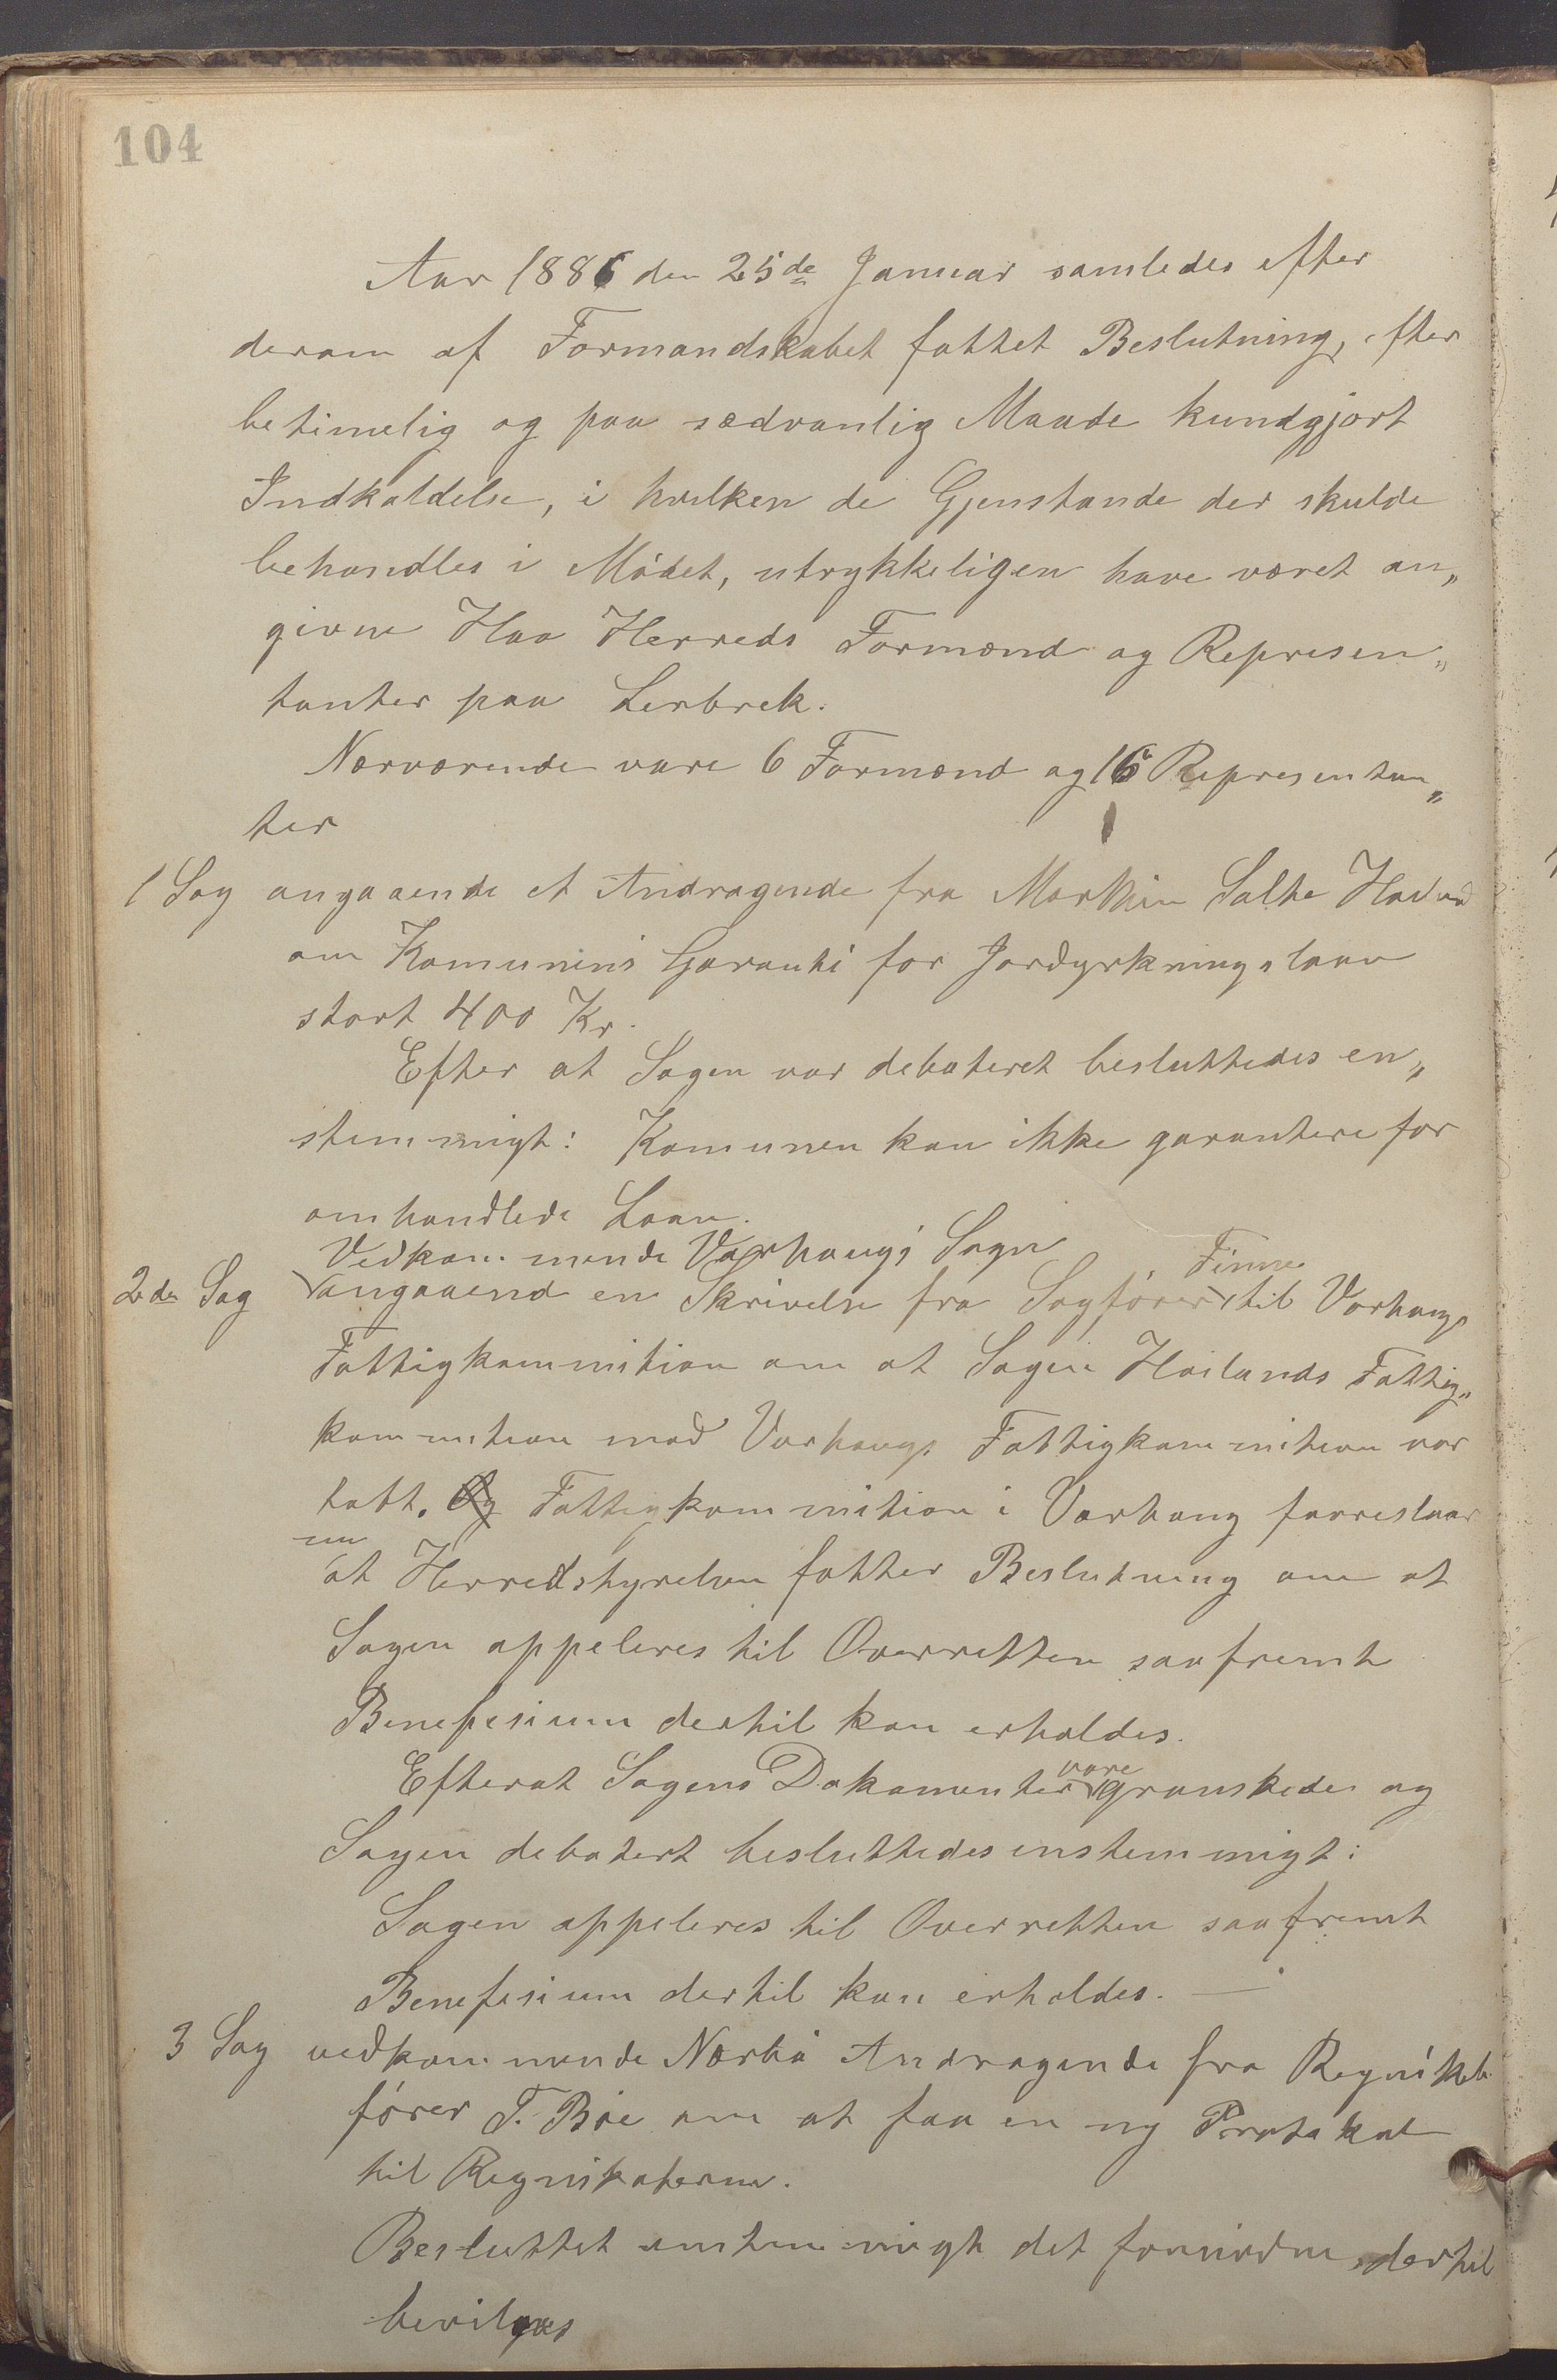 104
Aar 1886 den 25de Januar samledes efter
derom af Formandskabet fattet Beslutning, efter
betimelig og paa sædvanlig Maade kundgjort
Indkaldelse, i hvilken de Gjenstande der skulde
behandles i Mødet, utrykkeligen have været an„
givne Haa Herreds Formænd og Represen„
tanter paa Lerbrek.
Nærværende vare 6 Formænd og 16 Representan„
ter
1 Sag angaaende et Andragende fra Marthin Salte
om Komunens Garanti for Jordyrkningslaan
stort 400 Kr.
Efter at Sagen var debateret besluttedes en„
stemmigt: Komunen kan ikke garantere for
omhandlede Laan.
Vedkommende Varhougs Sogn
2den Sag angaaend en Skrivelse fra Sagfører Finne til Varhougs
Fattigkommition om at Sagen Høilands Fattig„
kommition mod Varhougs Fattigkommition var
tabt. Og Fattigkommition i Varhoug forreslaar
nu
at Herredstyrelsen fatter Beslutning om at
Sagen appeleres til Overretten saafremt
Benefisium dertil kan erholdes.
Efterat Sagens Dokumenter vare granskede og
Sagen debatert besluttedes enstemmigt:
Sagen appeleres til Overretten saafremt
Benefisium dertil kan erholdes. —
3 Sag vedkommende Nærbø Andragende fra
fører T. Bøe om at faa en ny Protokol
til
Besluttet enstemmigt det fornødne dertil
bevilges